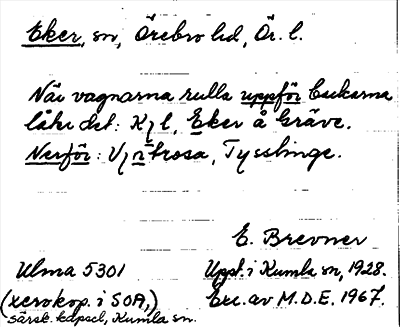 Eker, sn, Örebro hd, Ör. l.
När vagnarna rulla uppför backarna
låter det: K l, Eker å Gräve.
Nerför: V ntrosa, Tysslinge.
E. Brevner
Ulma 5301 Uppt. i Kumla sn, 1928.
(xerokop. i SOA,) Exc. av M.D.E. 1967.
särsk. kapsel, Kumla sn.